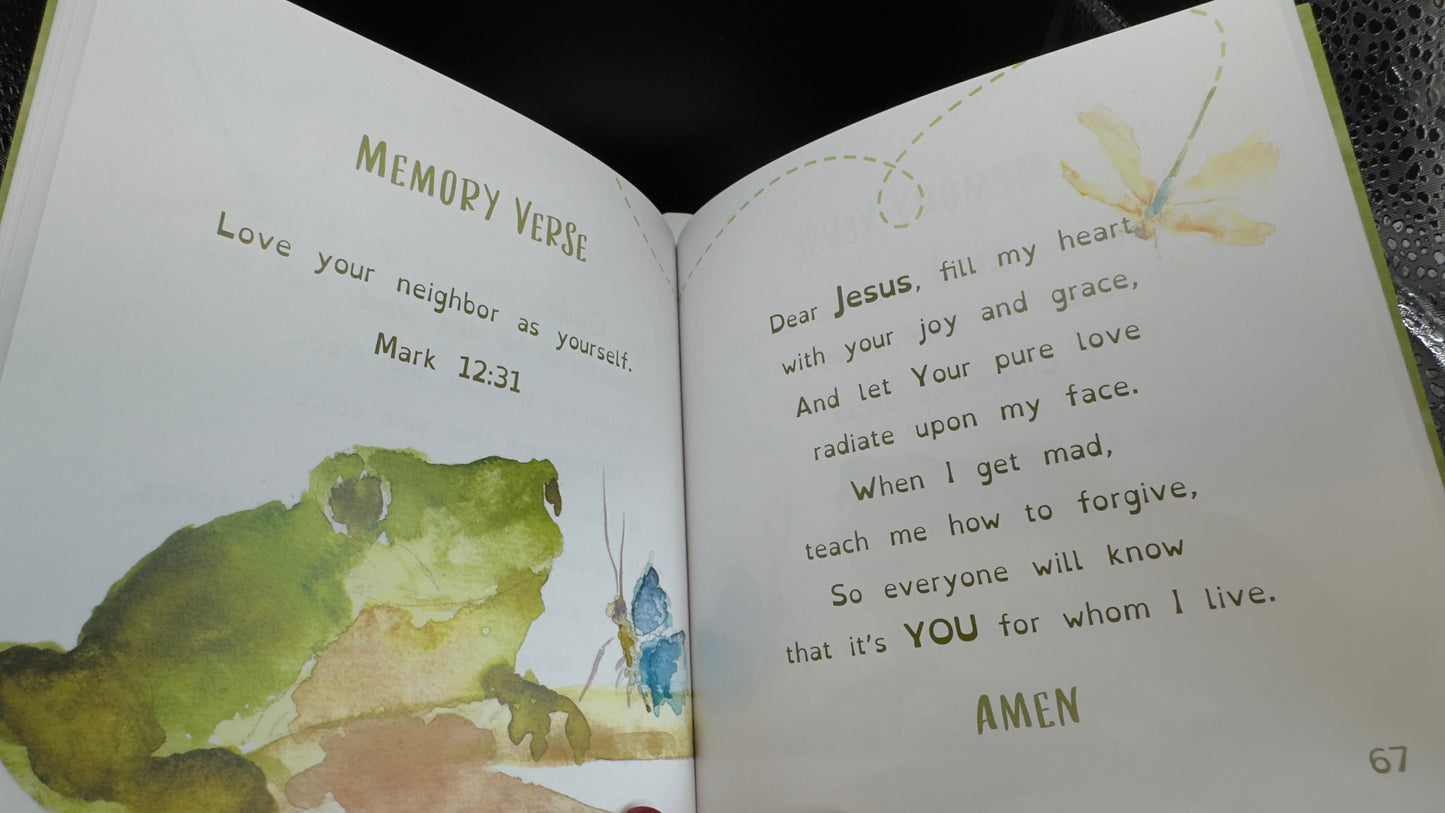 MEMORY VERSE
Love your neighbor as yourself.
Mark 12:31
Dear Jesus, fill my heart
with your joy and grace,
And let Your pure love
radiate upon my face.
When I get mad,
teach me how to forgive,
So everyone will know
that it's YOU for whom I live.
AMEN
67